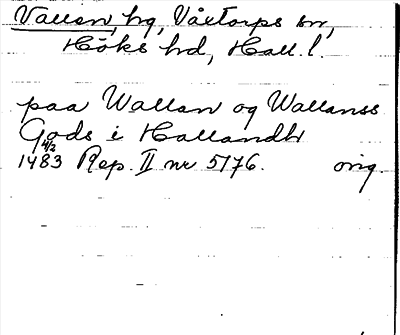 Vallen, hg, Våxtorps sn,
Höks hd, Hall. l.
paa Wallan og Wallanss
Gods i Hallandh
4/2
1483 Rep. II nr 5176. orig.